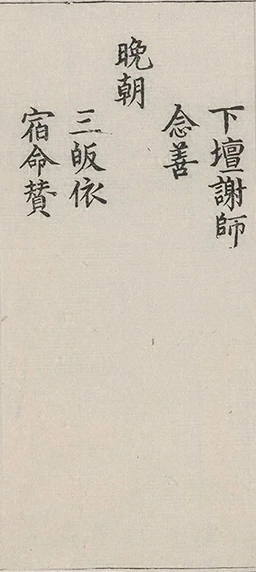 下壇謝師
念善
晚朝
三皈依
宿命贊